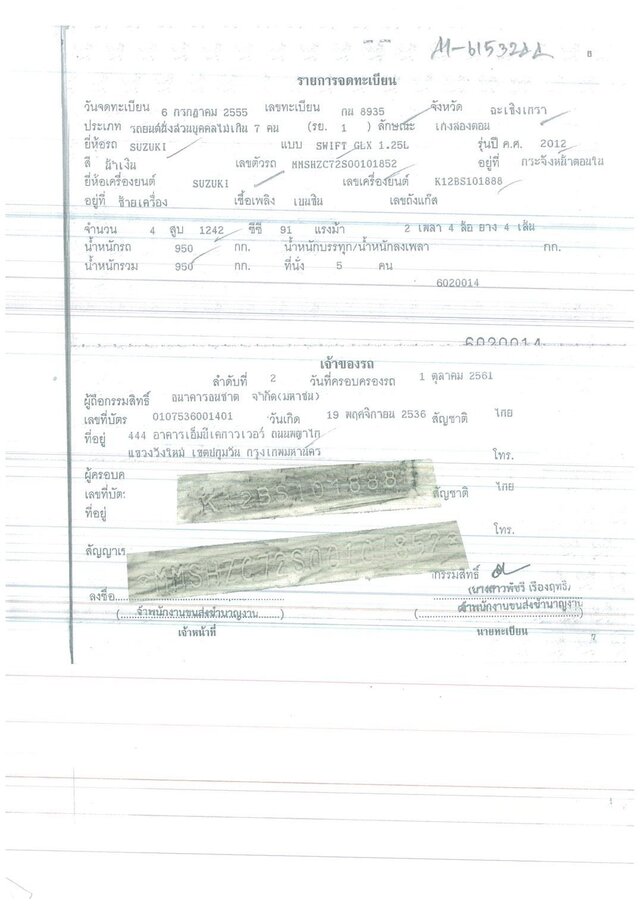 M-61532AA
8
รายการจดทะเบียน
วันจดทะเบียน 6 กรกฎาคม 2555 เลขทะเบียน กน 8935 จังหวัด ฉะเชิงเทรา
ประเภท รถยนต์นั่งส่วนบุคคลไม่เกิน 7 คน (รย. 1 ) ลักษณะ เก๋งสองตอน
ยี่ห้อรถ SUZUKI แบบ SWIFT GLX 1.25L รุ่นปี ค.ศ. 2012
สี น้ำเงิน เลขตัวรถ MMSHZC72S00101852 อยู่ที่ กระจังหน้าตอนใน
ยี่ห้อเครื่องยนต์ SUZUKI เลขเครื่องยนต์ K12BS101888
อยู่ที่ ซ้ายเครื่อง เชื้อเพลิง เบนซิน เลขถังแก๊ส
จำนวน 4 สูบ 1242 ซีซี 91 แรงม้า 2 เพลา 4 ล้อ ยาง 4 เส้น
น้ำหนักรถ 950 กก. น้ำหนักบรรทุก/น้ำหนักลงเพลา กก.
น้ำหนักรวม 950 กก. ที่นั่ง 5 คน
6020014
6020014
เจ้าของรถ
ลำดับที่ 2 วันที่ครอบครองรถ 1 ตุลาคม 2561
ผู้ถือกรรมสิทธิ์ ธนาคารธนชาต จำกัด(มหาชน)
เลขที่บัตร 0107536001401 วันเกิด 19 พฤศจิกายน 2536 สัญชาติ ไทย
ที่อยู่ 444 อาคารเอ็มบีเคทาวเวอร์ ถนนพญาไท
แขวงวังใหม่ เขตปทุมวัน กรุงเทพมหานคร โทร.
ผู้ครอบค
เลขที่บัต: K 2BS101888 สัญชาติ ไทย
ที่อยู่ โทร.
สัญญาเ MMSHZC72S00101852 กรรมสิทธิ์
ลงชื่อ (นางสาวพัชรี เรืองฤทธิ์)
(เจ้าพนักงานขนส่งชำนาญงาน) (เจ้าพนักงานขนส่งชำนาญงาน
เจ้าหน้าที่ นายทะเบียน 7